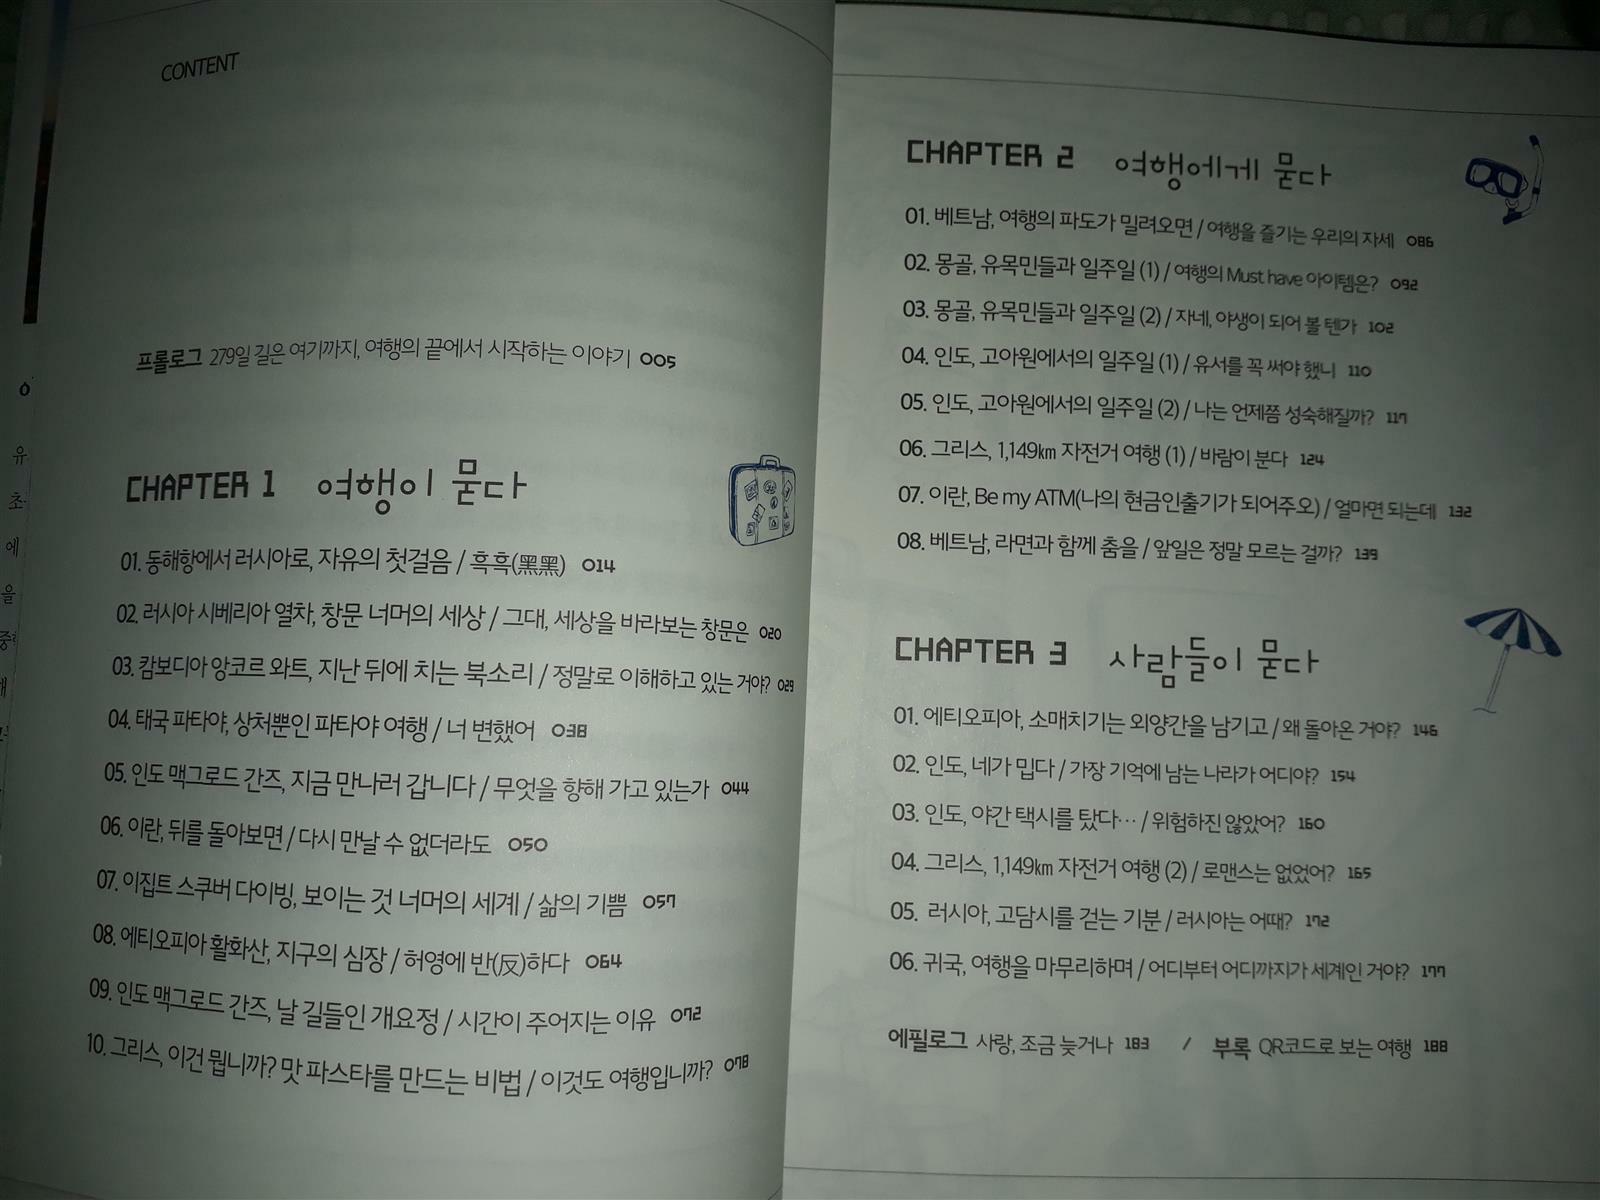 CONTENT
프롤로그 279일 길은 여기까지, 여행의 끝에서 시작하는 이야기 005
CHAPTER 1 여행이 묻다
01. 동해항에서 러시아로, 자유의 첫걸음 / 흑흑(黑黑) 014
02. 러시아 시베리아 열차, 창문 너머의 세상 / 그대, 세상을 바라보는 창문은 020
03. 캄보디아 앙코르 와트, 지난 뒤에 치는 북소리 / 정말로 이해하고 있는 거야? 029
04. 태국 파타야, 상처뿐인 파타야 여행 / 너 변했어 038
05. 인도 맥그로드 간즈, 지금 만나러 갑니다 / 무엇을 향해 가고 있는가 044
06. 이란, 뒤를 돌아보면 / 다시 만날 수 없더라도 050
07. 이집트 스쿠버 다이빙, 보이는 것 너머의 세계 / 삶의 기쁨 057
08. 에티오피아 활화산, 지구의 심장 / 허영에 반(反)하다 064
09. 인도 맥그로드 간즈, 날 길들인 개요정 / 시간이 주어지는 이유 072
10. 그리스, 이건 뭡니까? 맛 파스타를 만드는 비법 / 이것도 여행입니까? 078
CHAPTER 2 여행에게 묻다
01. 베트남, 여행의 파도가 밀려오면 / 여행을 즐기는 우리의 자세 086
02. 몽골, 유목민들과 일주일 (1) / 여행의 Must have 아이템은? 092
03. 몽골, 유목민들과 일주일 (2) / 자네, 야생이 되어 볼 텐가 102
04. 인도, 고아원에서의 일주일 (1) / 유서를 꼭 써야 했니 110
05. 인도, 고아원에서의 일주일 (2) / 나는 언제쯤 성숙해질까? 117
06. 그리스, 1,149㎞ 자전거 여행 (1) / 바람이 분다 124
07. 이란, Be my ATM(나의 현금인출기가 되어주오) / 얼마면 되는데 132
08. 베트남, 라면과 함께 춤을 / 앞일은 정말 모르는 걸까? 139
CHAPTER 3 사람들이 묻다
01. 에티오피아, 소매치기는 외양간을 남기고 / 왜 돌아온 거야? 146
02. 인도, 네가 밉다 / 가장 기억에 남는 나라가 어디야? 154
03. 인도, 야간 택시를 탔다… / 위험하진 않았어? 160
04. 그리스, 1,149㎞ 자전거 여행 (2) / 로맨스는 없었어? 165
05. 러시아, 고담시를 걷는 기분 / 러시아는 어때? 172
06. 귀국, 여행을 마무리하며 / 어디부터 어디까지가 세계인 거야? 177
에필로그 사랑, 조금 늦거나 183 / 부록 QR코드로 보는 여행 188